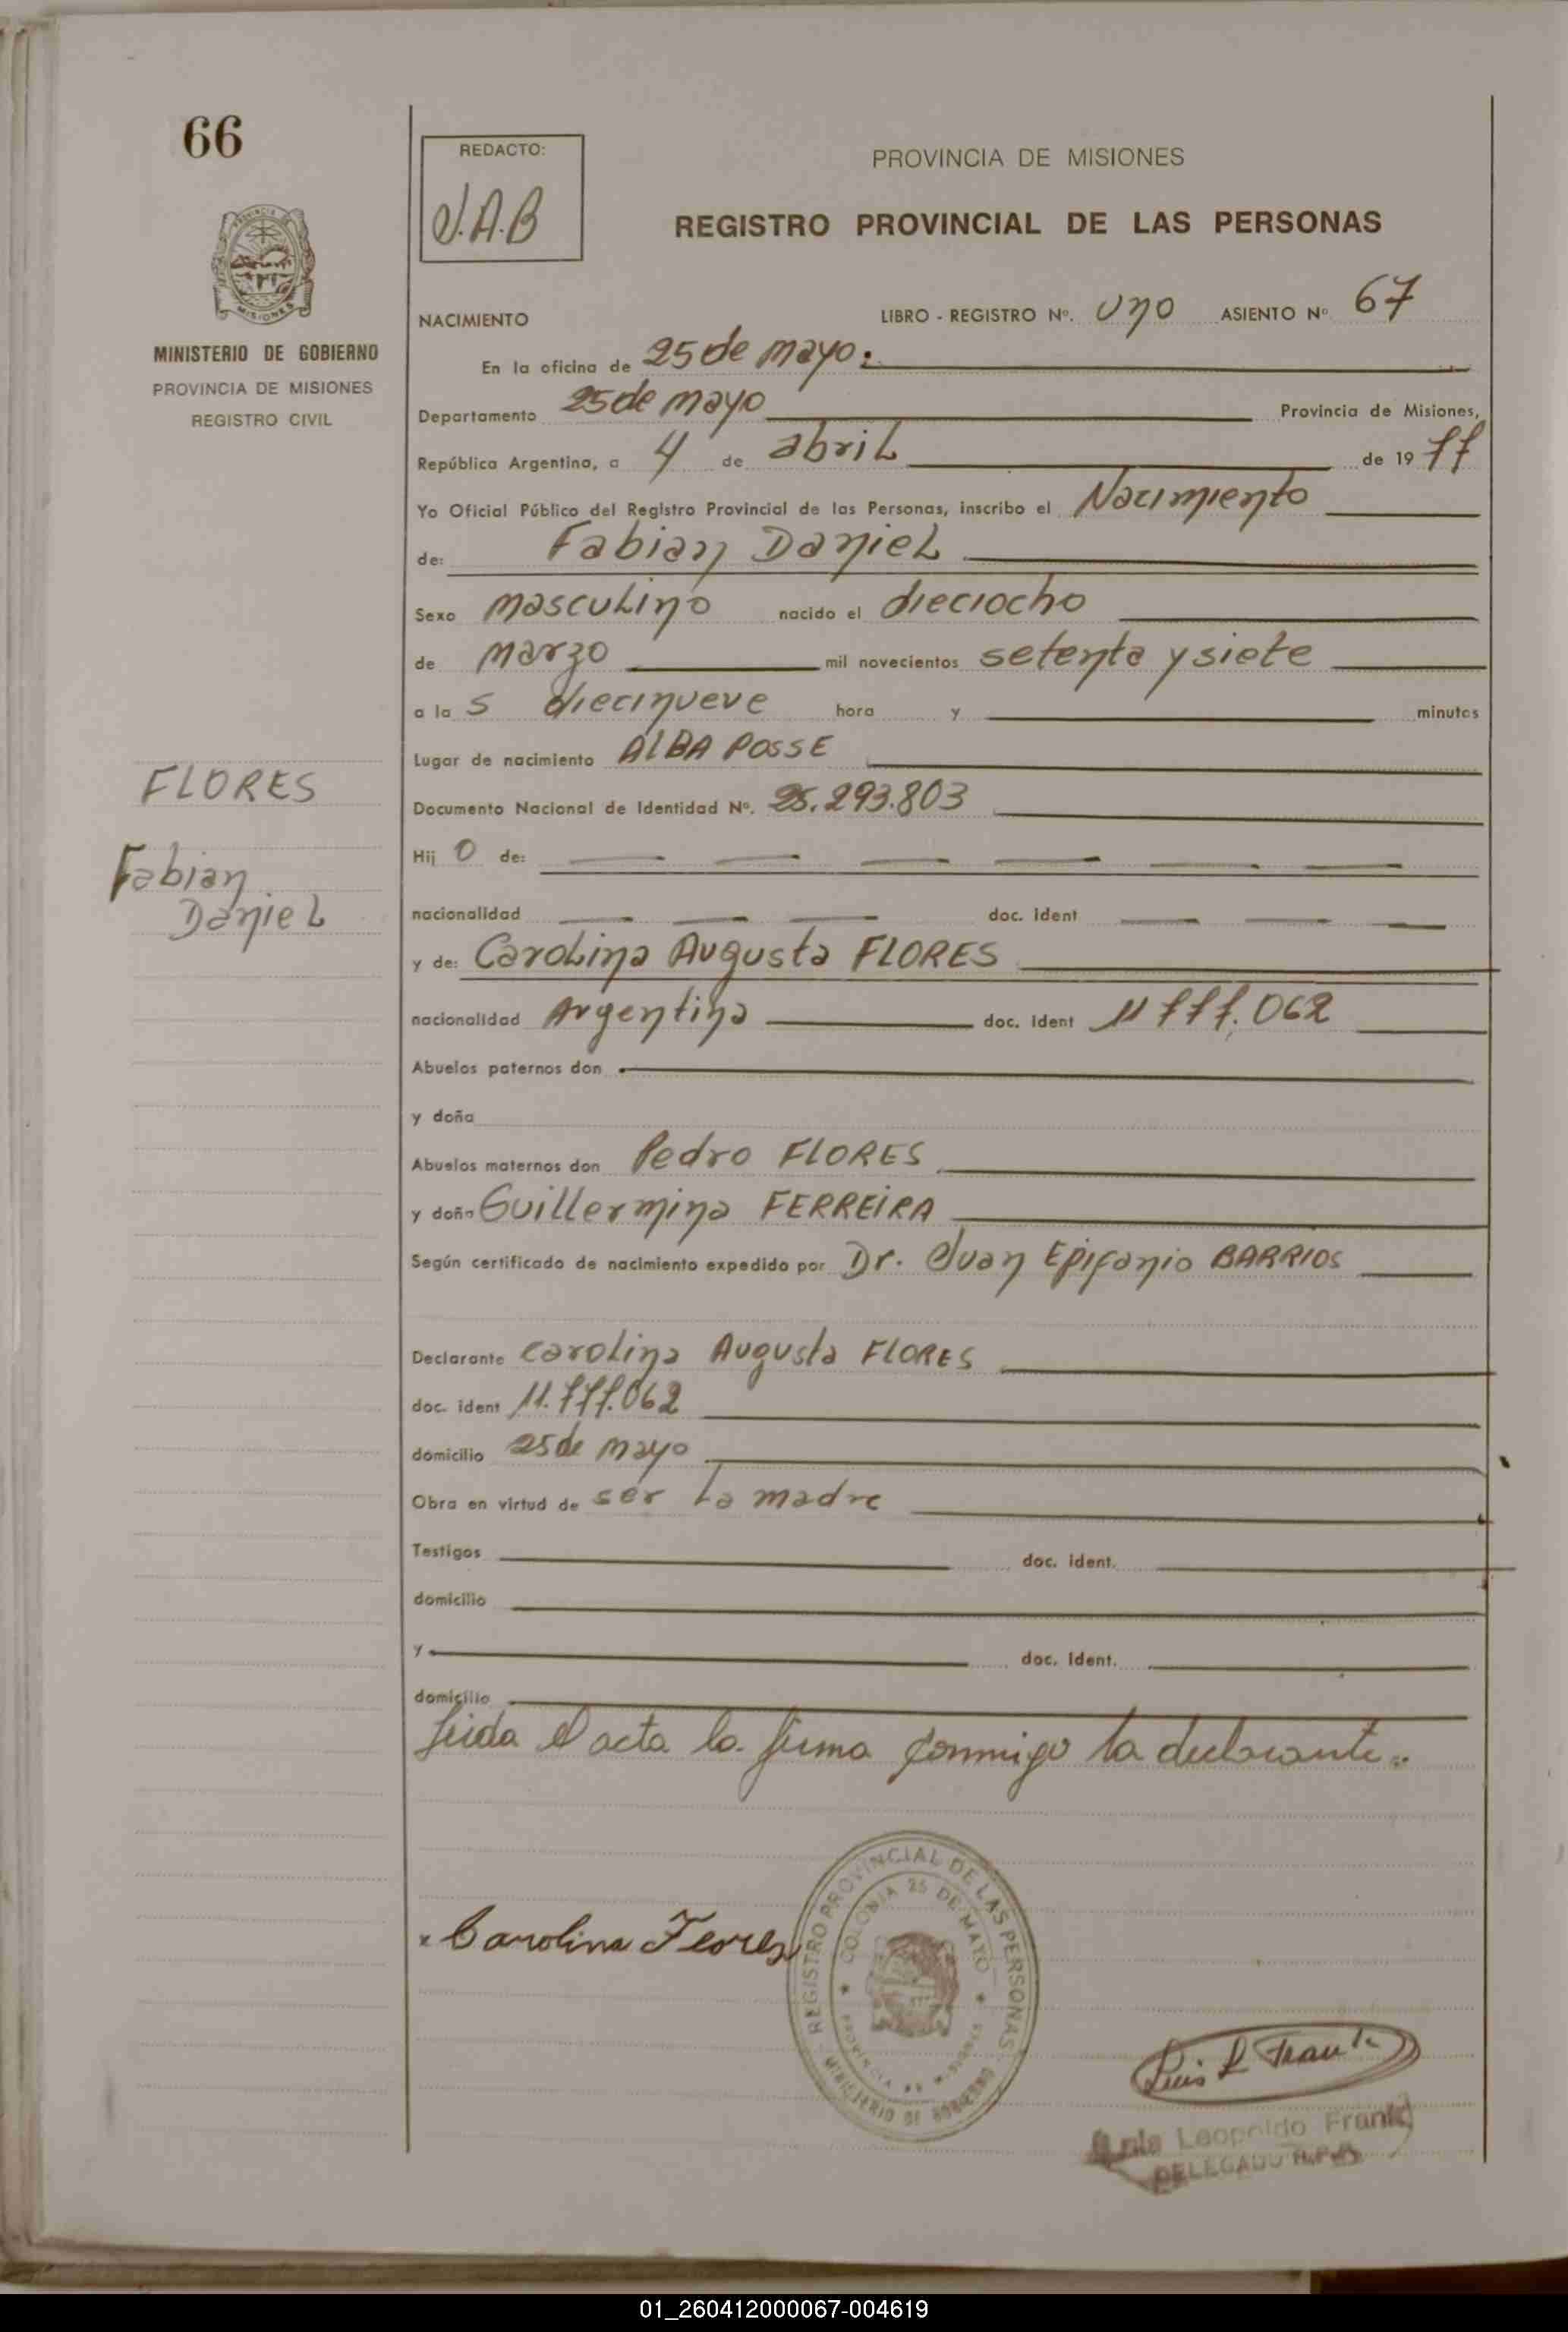 66
REDACTO:
J.A.B
PROVINCIA DE MISIONES
REGISTRO PROVINCIAL DE LAS PERSONAS
MISIONES
MINISTERIO DE GOBIERNO
PROVINCIA DE MISIONES
REGISTRO CIVIL
NACIMIENTO LIBRO - REGISTRO Nº. Uno ASIENTO Nº 67
En la oficina de 25 de mayo:
Departamento 25 de mayo Provincia de Misiones,
República Argentina, a 4 de abril de 1977
Yo Oficial Público del Registro Provincial de las Personas, inscribo el Nacimiento
de: Fabian Daniel
Sexo masculino nacido el dieciocho
de marzo mil novecientos setenta y siete
a la s diecinueve hora y minutos
Lugar de nacimiento ALBA POSSE
FLORES
Documento Nacional de Identidad Nº. 25.293.803
Fabian
Daniel
Hij o de:
nacionalidad doc. ident
y de: Carolina Augusta FLORES
nacionalidad Argentina doc. ident 11 777.062
Abuelos paternos don
y doña
Abuelos maternos don Pedro FLORES
y doña Guillermina FERREIRA
Según certificado de nacimiento expedido por Dr. Juan Epifanio BARRIOS
Declarante Carolina Augusta FLORES
doc. ident 11.777.062
domicilio 25 de mayo
Obra en virtud de ser la madre
Testigos doc. ident.
domicilio
y doc. ident.
domicilio
Leida el acta la firma conmigo la declarante..
x Carolina Flores
REGISTRO PROVINCIAL DE LAS PERSONAS
COLONIA 25 DE MAYO
PROVINCIA DE MISIONES
MINISTERIO DE GOBIERNO
Luis L Frank
Luis Leopoldo Frank
DELEGADO R.P.P.
01_260412000067-004619